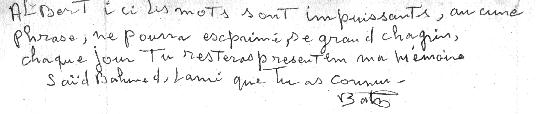 Albert ici les mots sont impuissants, aucune
phrase, ne pourra escprimé, se grand chagrin,
chaque jour Tu resteras present em ma Mémoire
Saïd Bahmed, Lami que Tu as connu -